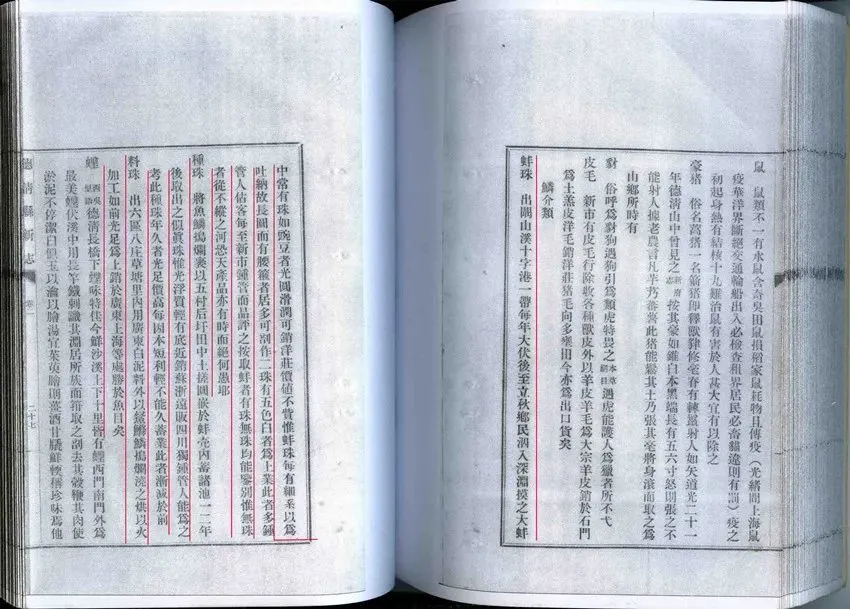 鼠　鼠類不一有水鼠含奇吳田鼠損稻家鼠耗物且傳疫（光緒間上海鼠
疫華洋界斷絕交通輪船出入必檢查租界居民必畜貓違則有罰）疫之
初起身熱有結核十九難治鼠有害於人甚大宜有以除之
豪猪　俗名蒿猪一名箭猪即釋獸豲脩毫脊有棘鬣射人如矢道光二十一
年德清山中曾見之 按其豪如錐白本黑端長有五六寸怒則張之不
能射人據老農言凡芋艿蕃薯此猪能鬆其土乃張其毫將身滾而取之爲
山鄉所時有
對　俗呼爲對狗遇狗引爲類虎特畏之 本草綱目 遇虎能護人爲獵者所不弋
皮毛　新市有皮毛行除收各種獸皮外以羊皮羊毛爲大宗羊皮銷於石門
爲土羔皮洋毛銷洋莊猪毛向多壅田今亦爲出口貨矣
鱗介類
蚌珠　出闗山溪十字港一帶每年大伏後至立秋鄉民泅入深淵摸之大蚌
中常有珠如豌豆者光圓滑潤可銷洋莊價値不貲惟蚌珠每有細系以爲
吐納故長圓而有腰箍者居多可剖作二珠有五色白者爲上業此者多鍾
管人估客每至新市鍾管而品評之按取蚌者有珠無珠均能鑒別惟無珠
者從不縱之河恐天產品亦有時而絕何愚耶
種珠　將魚鱗搗爛裹以五村后圩田中土搓圓嵌於蚌売內畜諸池一二年
後取出之似眞珠惟光浮質輕有底近銷蘇浙遠販四川獨鍾管人能爲之
考此種珠年久者光足價高每因本短利輕不能久畜業此者漸減於前
料珠　出六區八庄草塘里內用廣東白泥料外以鱗搗爛澆之烘以火
加工如前光足爲上銷於廣東上海等處勝於魚目矣
鱧 德清長橋下鱧味特佳今鮮沙溪上下十里皆有鱧西門南門外爲
最美鱧伏溪中用長竿鐵刺識其淵居所族而箝取之剖去其殼鞭其肉使
淤泥不停潔白似玉以滷以膾湯宜茱萸膾則薑酒甘膬鮮輭稱珍味爲他
德清縣新志
卷二
二十七